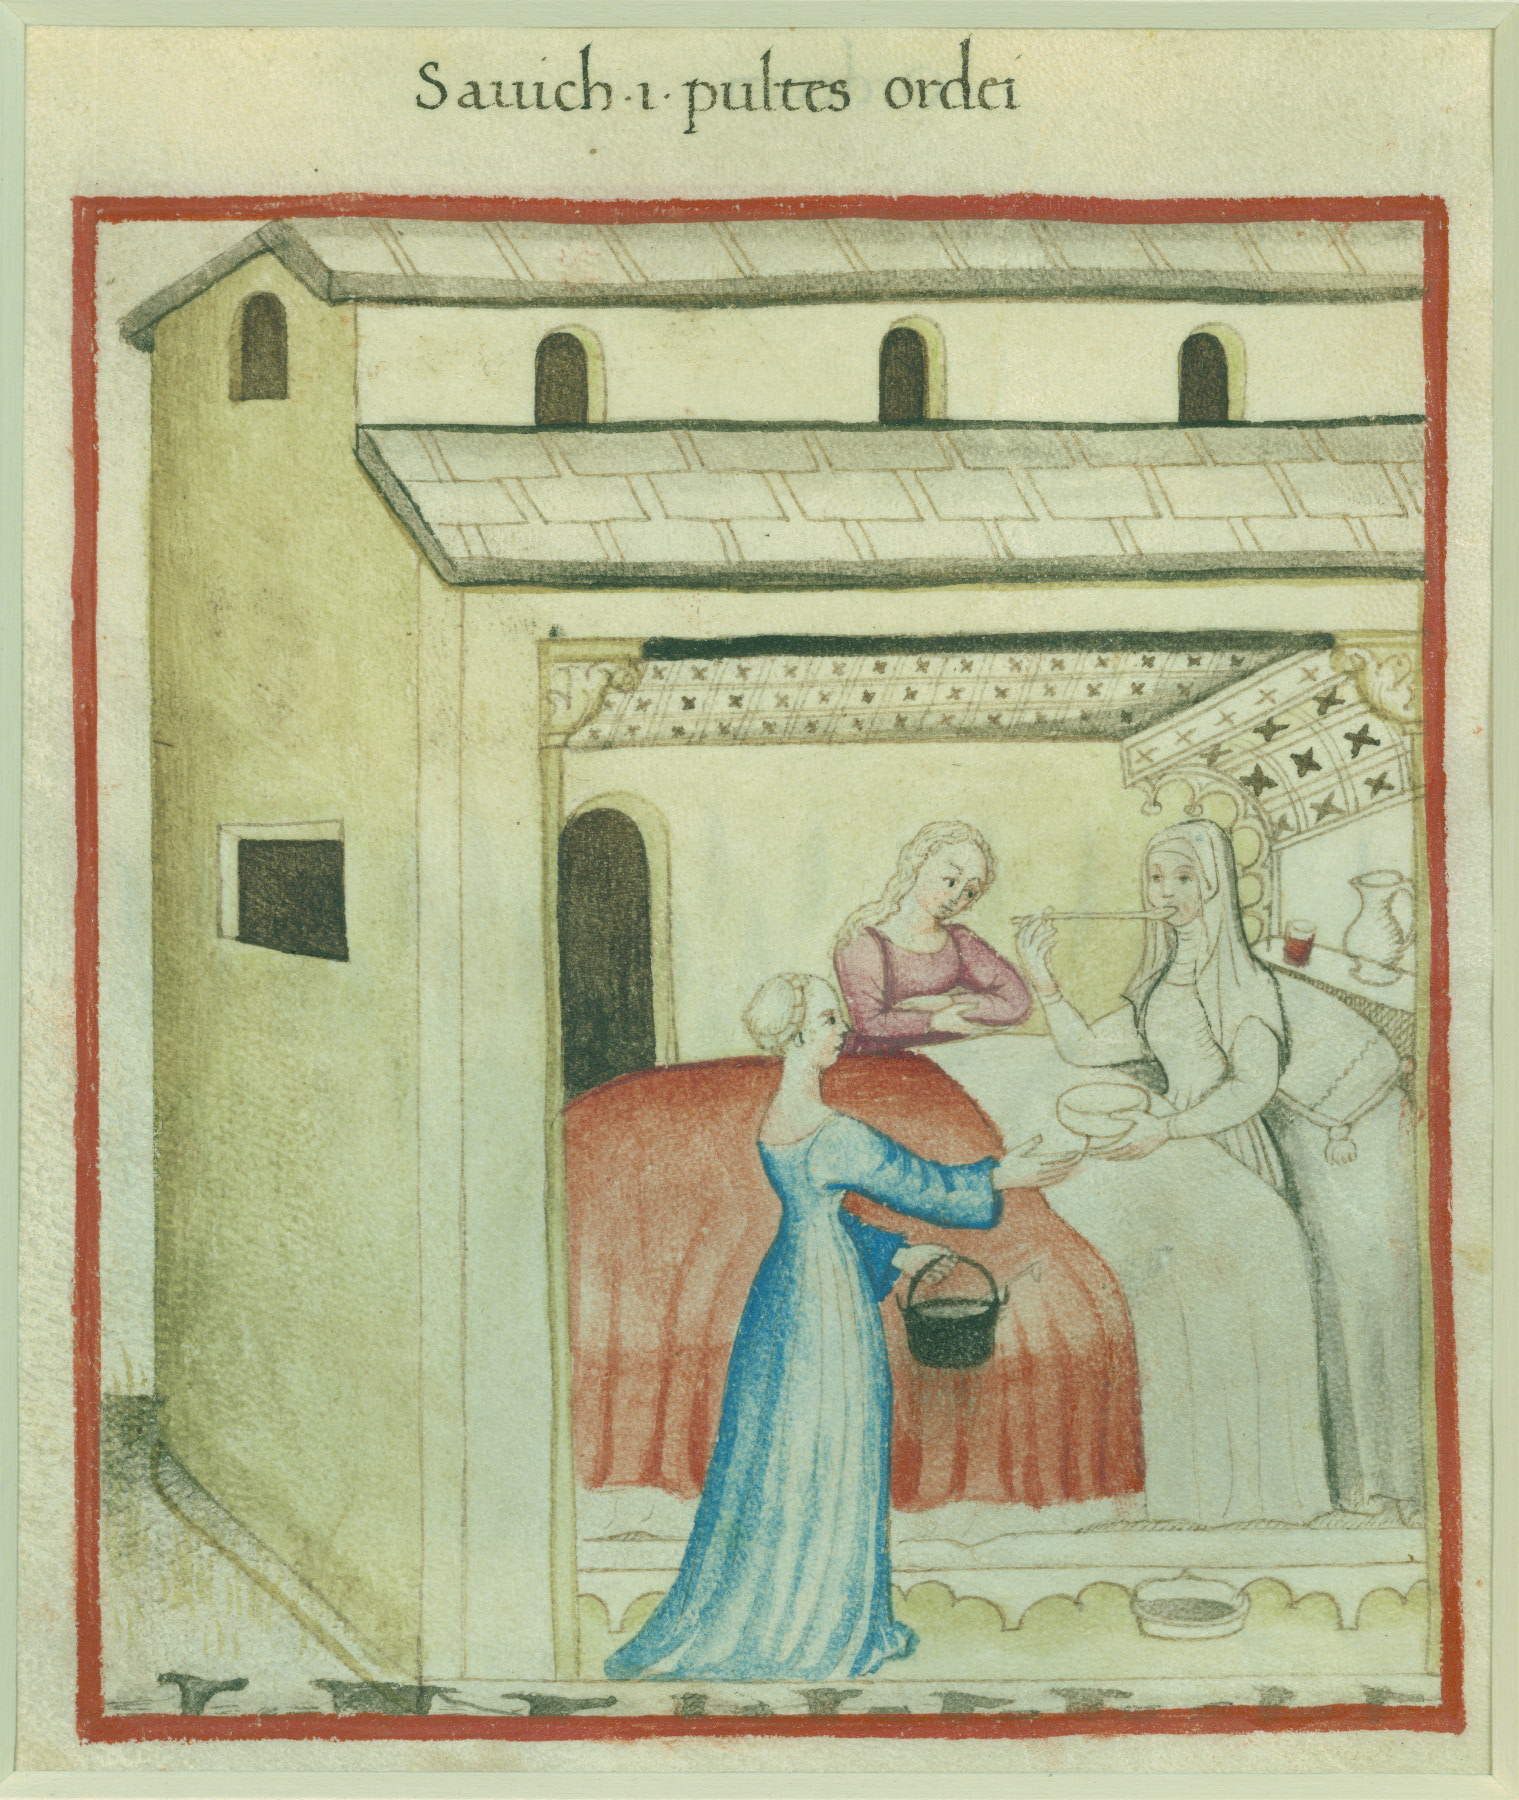 Sauich ·i· pultes ordei